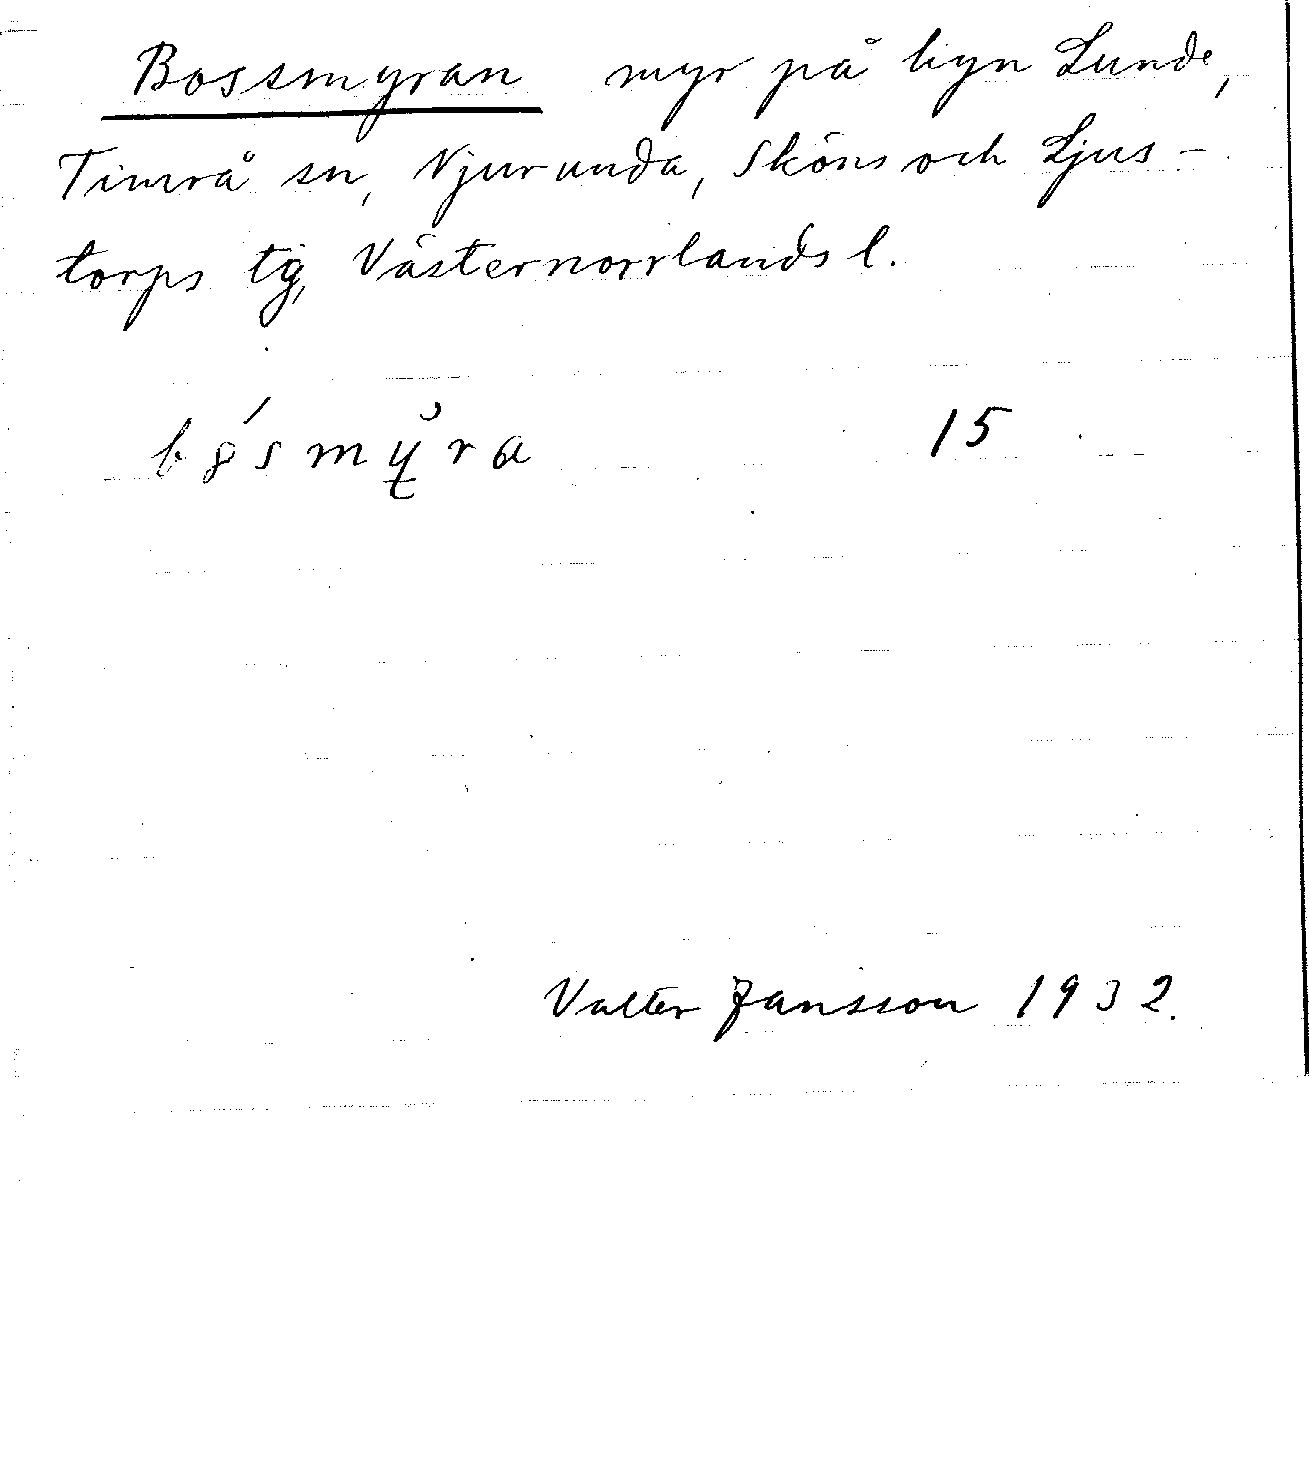 Bossmyran myr på byn Lunde,
Timrå sn, Njurunda, Sköns och Ljus-
torps tg, Västernorrlands l.
15
Valter Jansson 1932.